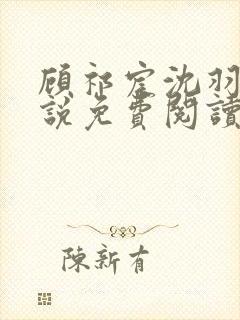 顧祁宧沈羽
說免費閱讀
陳新有